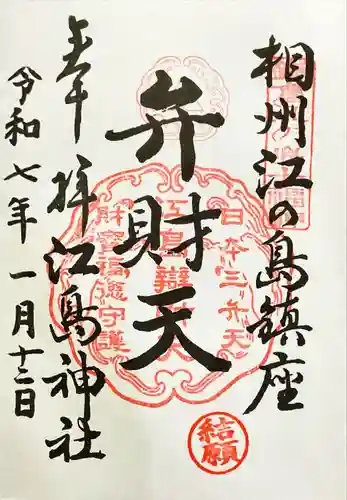 相州江の島鎮座
弁財天
奉拝 江島神社
令和七年一月十三日
日本三弁天
江島辯財天
財宝福徳守護
結願